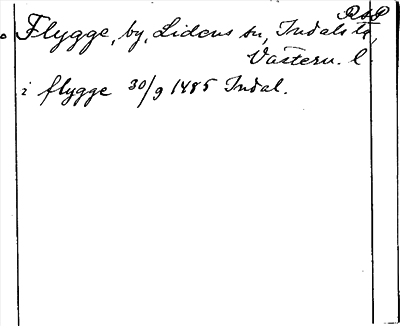 RAP
Flygge, by, Lidens sn, Indals tg,
Västern. l.
i flygge 30/9 1485 Indal.